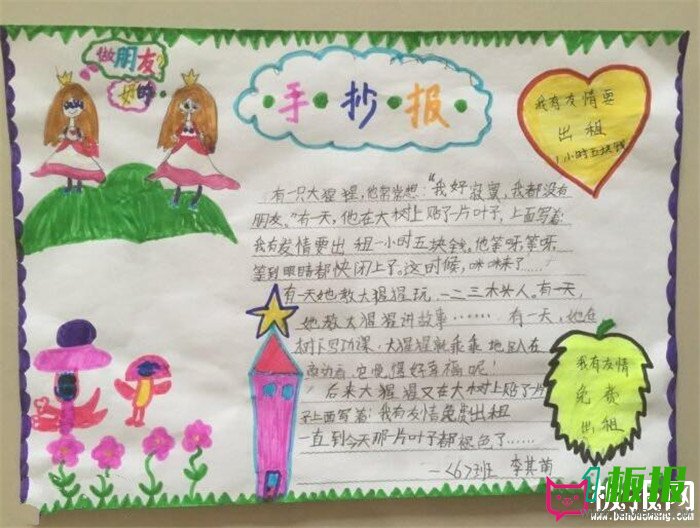 做朋友
好的
手抄报
我有友情要
出租
1小时五块钱
有一只大猩猩，他常常想："我好寂寞，我都没有
朋友。"有一天，他在大树上贴了片叶子，上面写着：
我有友情要出租一小时五块钱。他等呀，等呀，
等到眼睛都快闭上了。这时候，咪咪来了……
有一天她教大猩猩玩一二三木头人。有一天，
她教大猩猩讲故事……有一天，她在
树下写功课，大猩猩就乖乖地趴在
旁边看，它觉得好幸福呢！
后来大猩猩又在大树上贴了片
子上面写着：我有友情免费出租
一直到今天那一片叶子都褪色了……
一〈6〉班 李其
我有友情
免费
出租
板报网
www.banbaowang.com